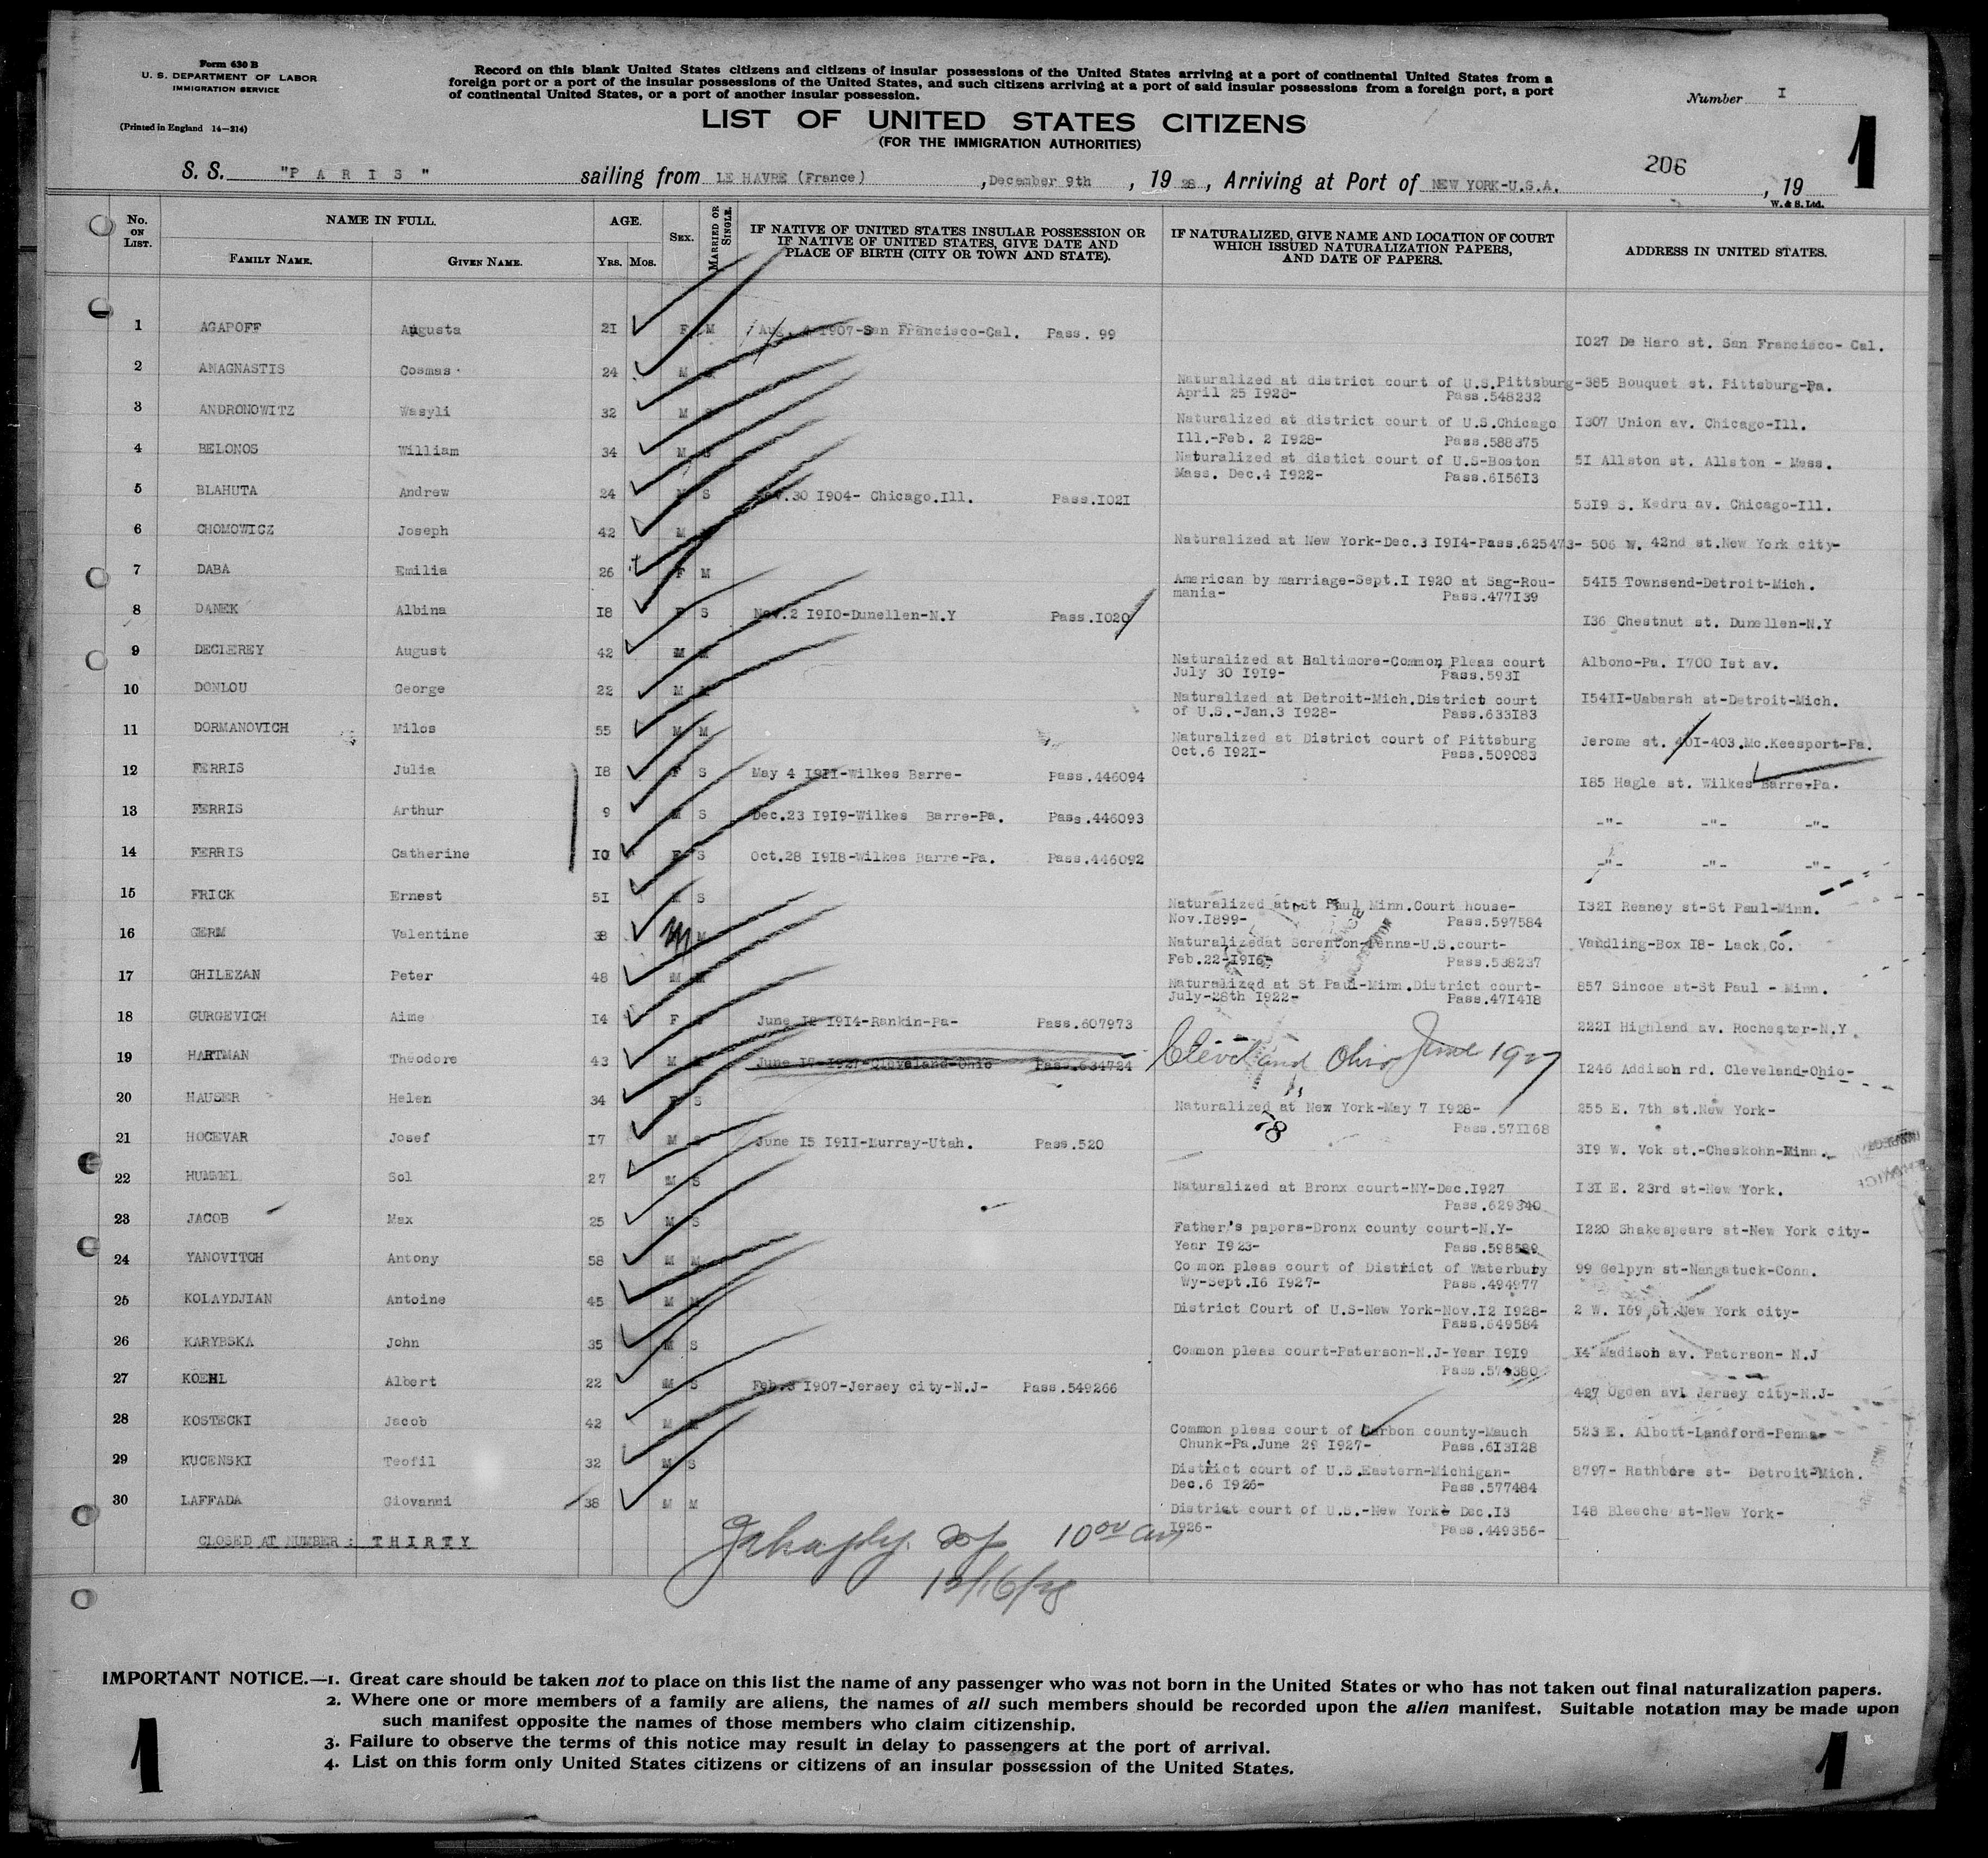 Form 630 B
U. S. DEPARTMENT OF LABOR
IMMIGRATION SERVICE
(Printed in England 14—214)
Record on this blank United States citizens and citizens of insular possessions of the United States arriving at a port of continental United States from a
foreign port or a port of the insular possessions of the United States, and such citizens arriving at a port of said insular possessions from a foreign port, a port
of continental United States, or a port of another insular possession.
Number I
LIST OF UNITED STATES CITIZENS
(FOR THE IMMIGRATION AUTHORITIES)
1
206
S. S. "P A R I S" sailing from LE HAVRE (France), December 9th, 19 28, Arriving at Port of NEW YORK-U.S.A., 19
W. & S. Ltd.
No. ON LIST. NAME IN FULL. FAMILY NAME. GIVEN NAME. AGE. YRS. MOS. SEX. MARRIED OR SINGLE. IF NATIVE OF UNITED STATES INSULAR POSSESSION OR IF NATIVE OF UNITED STATES, GIVE DATE AND PLACE OF BIRTH (CITY OR TOWN AND STATE). IF NATURALIZED, GIVE NAME AND LOCATION OF COURT WHICH ISSUED NATURALIZATION PAPERS, AND DATE OF PAPERS. ADDRESS IN UNITED STATES.
1 AGAPOFF Augusta 21 F M Aug. 1907-San Francisco-Cal. Pass. 99 1027 De Haro st. San Francisco- Cal.
2 ANAGNASTIS Cosmas 24 M Naturalized at district court of U.S.Pittsburg- 385 Bouquet st. Pittsburg-Pa.
April 25 1928- Pass.548232
3 ANDRONOWITZ Wasyli 32 M S Naturalized at district court of U.S.Chicago 1307 Union av. Chicago-Ill.
Ill.-Feb. 2 1928- Pass.588375
4 BELONOS William 34 M S Naturalized at distict court of U.S-Boston 51 Allston st. Allston - Mass.
Mass. Dec.4 1922- Pass.615613
5 BLAHUTA Andrew 24 M S Nov.30 1904- Chicago.Ill. Pass.1021 5319 S. Kedru av. Chicago-Ill.
6 CHOMOWICZ Joseph 42 M Naturalized at New York-Dec.3 1914-Pass.625473- 506 W. 42nd st.New York city-
7 DABA Emilia 26 F M American by marriage-Sept.1 1920 at Sag-Rou- 5415 Townsend-Detroit-Mich.
mania- Pass.477139
8 DANEK Albina 18 F S Nov.2 1910-Dunellen-N.Y Pass.1020 136 Chestnut st. Dunellen-N.Y
9 DECLEREY August 42 M M Naturalized at Baltimore-Common Pleas court Albono-Pa. 1700 1st av.
July 30 1919- Pass.5931
10 DONLOU George 22 M M Naturalized at Detroit-Mich.District court 15411-Uabarsh st-Detroit-Mich.
of U.S.-Jan.3 1928- Pass.633183
11 DORMANOVICH Milos 55 M M Naturalized at District court of Pittsburg Jerome st. 401-403.Mc.Keesport-Pa.
Oct.6 1921- Pass.509083
12 FERRIS Julia 18 F S May 4 1911-Wilkes Barre- Pass.446094 185 Hagle st. Wilkes Barre-Pa.
13 FERRIS Arthur 9 M S Dec.23 1919-Wilkes Barre-Pa. Pass.446093 -"- -"- -"-
14 FERRIS Catherine 10 F S Oct.28 1918-Wilkes Barre-Pa. Pass.446092 -"- -"- -"-
15 FRICK Ernest 51 M S Naturalized at St Paul Minn.Court house- 1321 Reaney st-St Paul-Minn.
Nov.1899- Pass.597584
16 GERM Valentine 38 M M Naturalizedat Screnton-Penna-U.S.court- Vandling-Box 18- Lack Co.
Feb.22-1916- Pass.538237
17 GHILEZAN Peter 48 M M Naturalized at St Paul-Minn.District court- 857 Sincoe st-St Paul - Minn.
July-28th 1922- Pass.471418
18 GURGEVICH Aime 14 F June 12 1914-Rankin-Pa- Pass.607973 2221 Highland av. Rochester-N.Y.
19 HARTMAN Théodore 43 M June 17-1927-Cleveland-Ohio Pass.634724 Cleveland Ohio June 1927 1246 Addison rd. Cleveland-Ohio-
20 HAUSER Helen 34 F S Naturalized at New York-May 7 1928- 255 E. 7th st.New York-
Pass.571168
21 HOCEVAR Josef 17 M S June 15 1911-Murray-Utah. Pass.520 319 W. Vok st.-Cheskohn-Minn.
22 HUMMEL Sol 27 M S Naturalized at Bronx court-NY-Dec.1927 131 E. 23rd st-New York.
Pass.629340
23 JACOB Max 25 M S Father's papers-Bronx county court-N.Y- 1220 Shakespeare st-New York city-
Year 1923- Pass.598589
24 YANOVITCH Antony 58 M M Common pleas court of District of Waterbury 99 Gelpyn st-Nangatuck-Conn.
Wy-Sept.16 1927- Pass.494977
25 KOLAYDJIAN Antoine 45 M M District Court of U.S-New York-Nov.12 1928- 2 W. 169 St.New York city-
Pass.649584
26 KARYBSKA John 35 M S Common pleas court-Paterson-N.J-Year 1919 14 Madison av. Paterson- N.J
Pass.574380
27 KOEHL Albert 22 M S Feb.3 1907-Jersey city-N.J- Pass.549266 427 Ogden av. Jersey city-N.J-
28 KOSTECKI Jacob 42 M M Common pleas court of Carbon county-Mauch 523 E. Albott-Landford-Penna-
Chunk-Pa.June 29 1927- Pass.613128
29 KUCENSKI Teofil 32 M S District court of U.S.Eastern-Michigan- 8797- Rathbore st- Detroit-Mich.
Dec.6 1926- Pass.577484
30 LAFFADA Giovanni 38 M M District court of U.S.-New York- Dec.13 148 Bleeche st-New York-
1926- Pass.449356-
CLOSED AT NUMBER : T H I R T Y
10 00 am
12/16/28
IMPORTANT NOTICE.—1. Great care should be taken not to place on this list the name of any passenger who was not born in the United States or who has not taken out final naturalization papers.
2. Where one or more members of a family are aliens, the names of all such members should be recorded upon the alien manifest. Suitable notation may be made upon
such manifest opposite the names of those members who claim citizenship.
3. Failure to observe the terms of this notice may result in delay to passengers at the port of arrival.
4. List on this form only United States citizens or citizens of an insular possession of the United States.
1
1